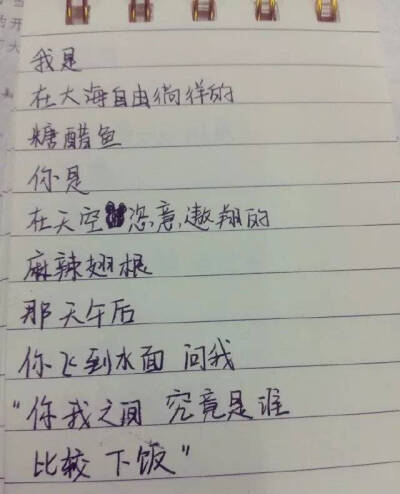 我是
在大海自由徜徉的
糖醋鱼
你是
在天空恣意,遨翔的
麻辣翅根
那天午后
你飞到水面 问我
"你我之间 究竟是谁
比较 下饭"